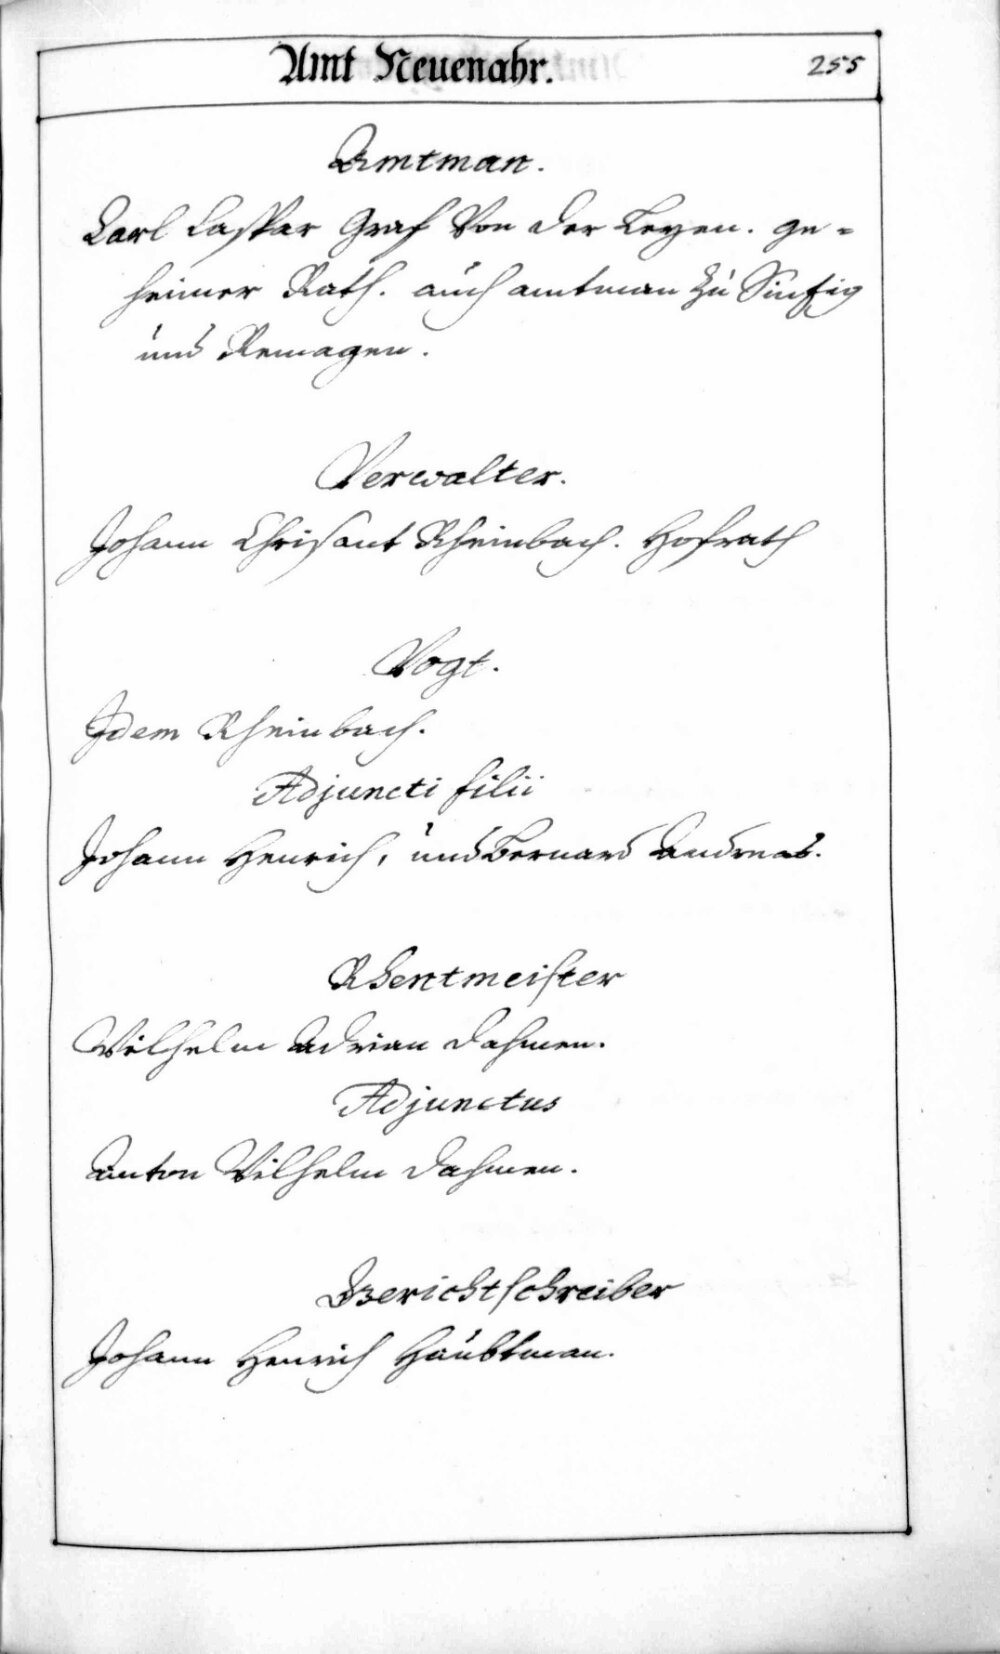 Amt Neuenahr.
255
Amtman.
Carl Caspar Graf Von der Leyen. ge=
heimer Rath. auch amtman zu Sintzig
und Remagen.
Verwalter.
Johann Chrisant Rheinbach. Hofrath
Vogt.
Idem Rheinbach.
Adjuncti filii
Johann Henrich, und Bernard Andreas.
Rhentmeister
Wilhelm Adrian Dahmen.
Adjunctus
Anton Wilhelm Dahmen.
Gerichtschreiber
Johann Henrich Haubtman.